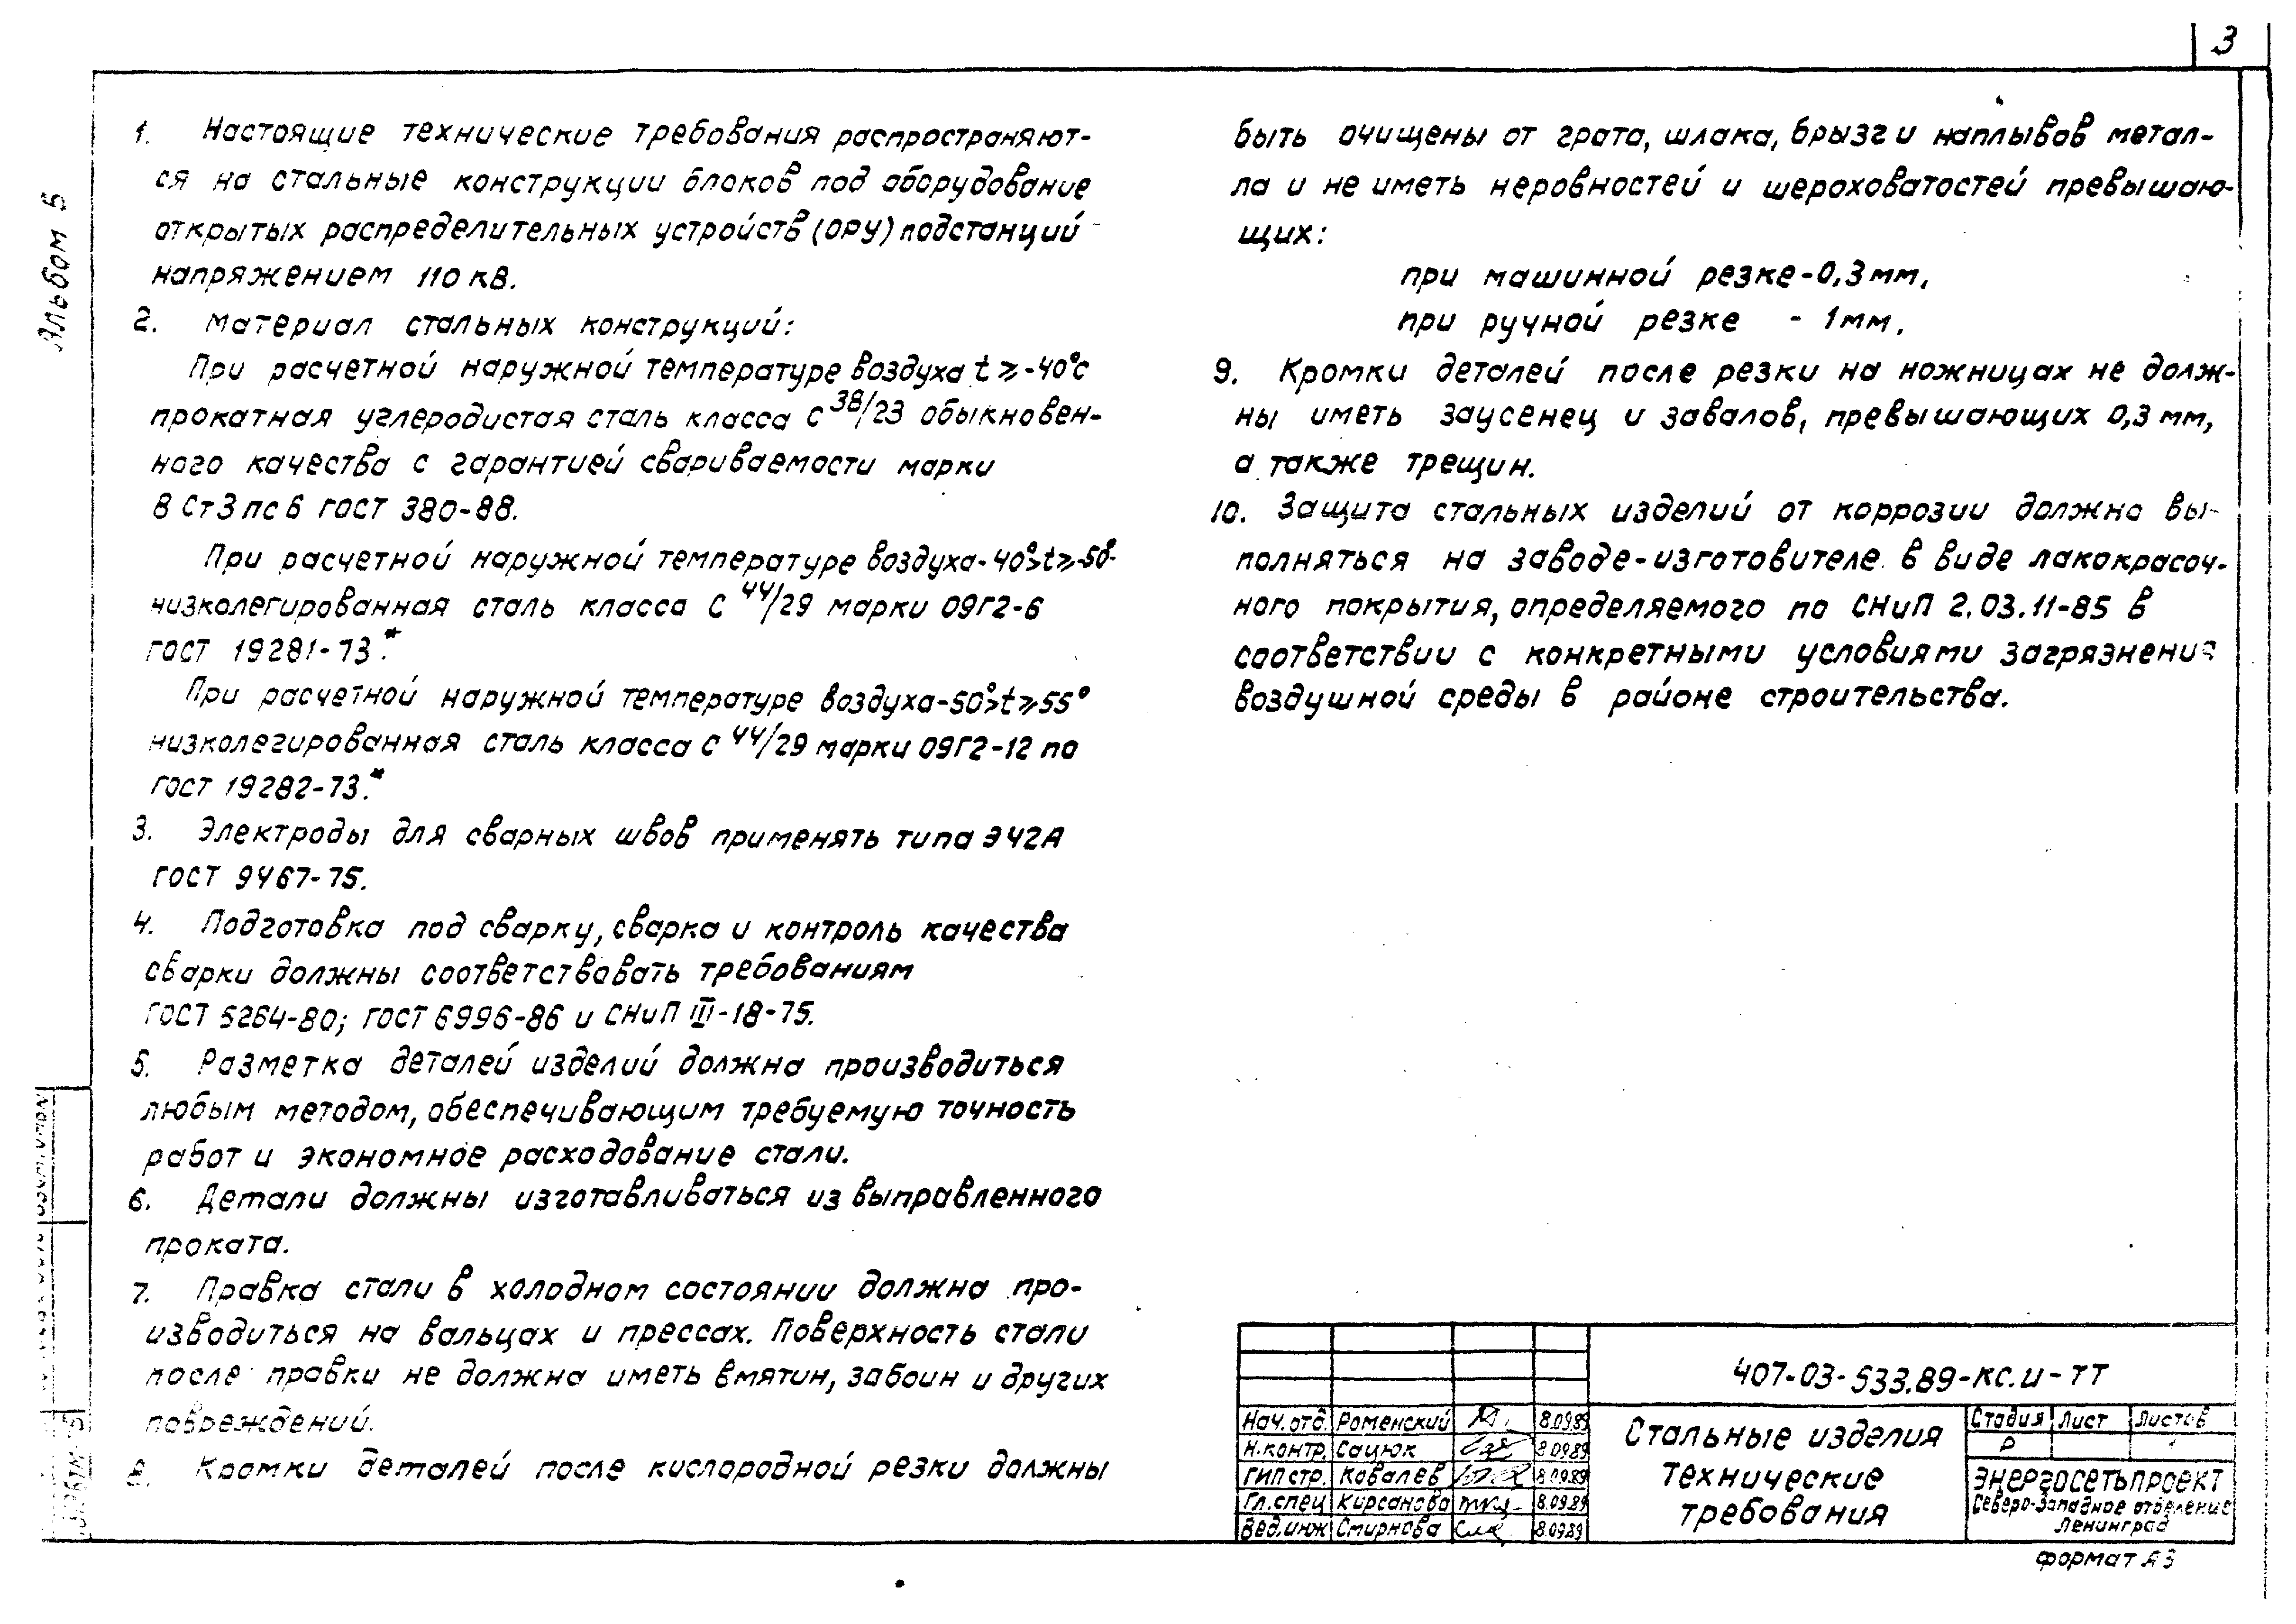 3
Альбом 5
1. Настоящие технические требования распространяют-
ся на стальные конструкции блоков под оборудование
открытых распределительных устройств (ОРУ) подстанций
напряжением 110 кв.
2. Материал стальных конструкций:
При расчетной наружной температуре воздуха t ⩾ -40°с
прокатная углеродистая сталь класса С 38/23 обыкновен-
ного качества с гарантией свариваемости марки
В Ст3 пс 6 ГОСТ 380-88.
При расчетной наружной температуре воздуха -40°>t⩾-50°
низколегированная сталь класса С 44/29 марки 09Г2-6
ГОСТ 19281-73.*
При расчетной наружной температуре воздуха -50°>t⩾55°
низколегированная сталь класса С 44/29 марки 09Г2-12 по
ГОСТ 19282-73.*
3. Электроды для сварных швов применять типа Э42А
ГОСТ 9467-75.
4. Подготовка под сварку, сварка и контроль качества
сварки должны соответствовать требованиям
ГОСТ 5264-80; ГОСТ 6996-86 и СНиП III-18-75.
5. Разметка деталей изделий должна производиться
любым методом, обеспечивающим требуемую точность
работ и экономное расходование стали.
6. Детали должны изготавливаться из выправленного
проката.
7. Правка стали в холодном состоянии должна про-
изводиться на вальцах и прессах. Поверхность стали
после правки не должна иметь вмятин, забоин и других
повреждений.
8. Кромки деталей после кислородной резки должны
быть очищены от грата, шлака, брызг и наплывов метал-
ла и не иметь неровностей и шероховатостей превышаю-
щих:
при машинной резке - 0,3 мм,
при ручной резке - 1 мм.
9. Кромки деталей после резки на ножницах не долж-
ны иметь заусенец и завалов, превышающих 0,3 мм,
а также трещин.
10. Защита стальных изделий от коррозии должна вы-
полняться на заводе-изготовителе в виде лакокрасоч-
ного покрытия, определяемого по СНиП 2.03.11-85 в
соответствии с конкретными условиями загрязнения
воздушной среды в районе строительства.
407-03-533.89-КС.И-ТТ
Нач.отд. Роменский 8.09.89
Н.контр. Сацюк 8.09.89
ГИП стр. Ковалев 8.09.89
Гл.спец Кирсанова 8.09.89
Вед.инж Смирнова 8.09.89
Стальные изделия
технические
требования
Стадия Лист Листов
Р 1
Энергосетьпроект
Северо-Западное отделение
Ленинград
формат А3